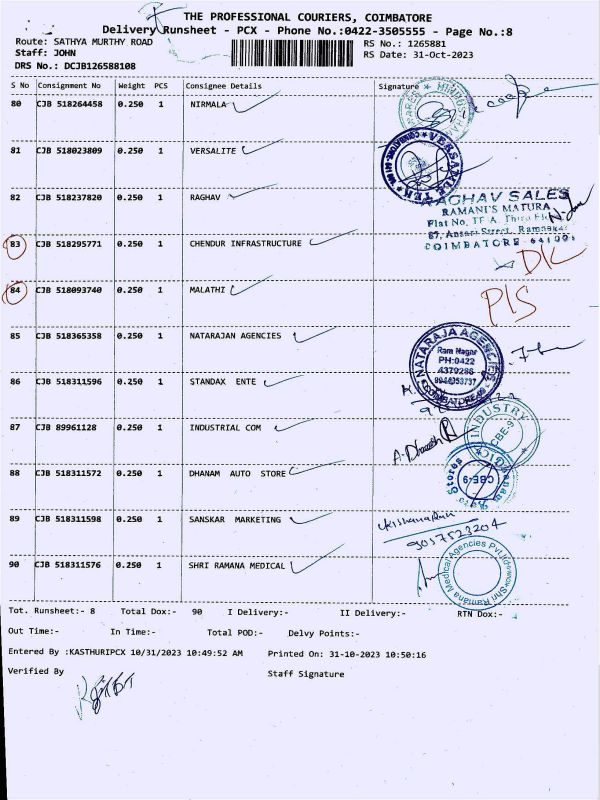 THE PROFESSIONAL COURIERS, COIMBATORE
Delivery Runsheet - PCX - Phone No.:0422-3505555 - Page No.:8
Route: SATHYA MURTHY ROAD
RS No.: 1265881
Staff: JOHN
RS Date: 31-Oct-2023
DRS No.: DCJB126588108
S No Consignment No Weight PCS Consignee Details Signature
80 CJB 518264458 0.250 1 NIRMALA
81 CJB 518023809 0.250 1 VERSALITE
82 CJB 518237820 0.250 1 RAGHAV
RAGHAV SALES
RAMANI'S MATURA
Flat No, TF A, Third
87, Ansari Street, Ramnagar
COIMBATORE - 641009
83 CJB 518295771 0.250 1 CHENDUR INFRASTRUCTURE
DK
84 CJB 518093740 0.250 1 MALATHI
PIS
85 CJB 518365358 0.250 1 NATARAJAN AGENCIES
NATARAJA AGENCIES
Ram Nagar
PH:0422
4379286
COIMBATORE
86 CJB 518311596 0.250 1 STANDAX ENTE
87 CJB 89961128 0.250 1 INDUSTRIAL COM
INDUSTRY
CBE-9
88 CJB 518311572 0.250 1 DHANAM AUTO STORE
Stores
CBE-9
89 CJB 518311598 0.250 1 SANSKAR MARKETING
9057523204
90 CJB 518311576 0.250 1 SHRI RAMANA MEDICAL
Shri Ramana Medical Agencies Pvt Ltd
Tot. Runsheet:- 8 Total Dox:- 90 I Delivery:- II Delivery:- RTN Dox:-
Out Time:- In Time:- Total POD:- Delvy Points:-
Entered By :KASTHURIPCX 10/31/2023 10:49:52 AM Printed On: 31-10-2023 10:50:16
Verified By Staff Signature